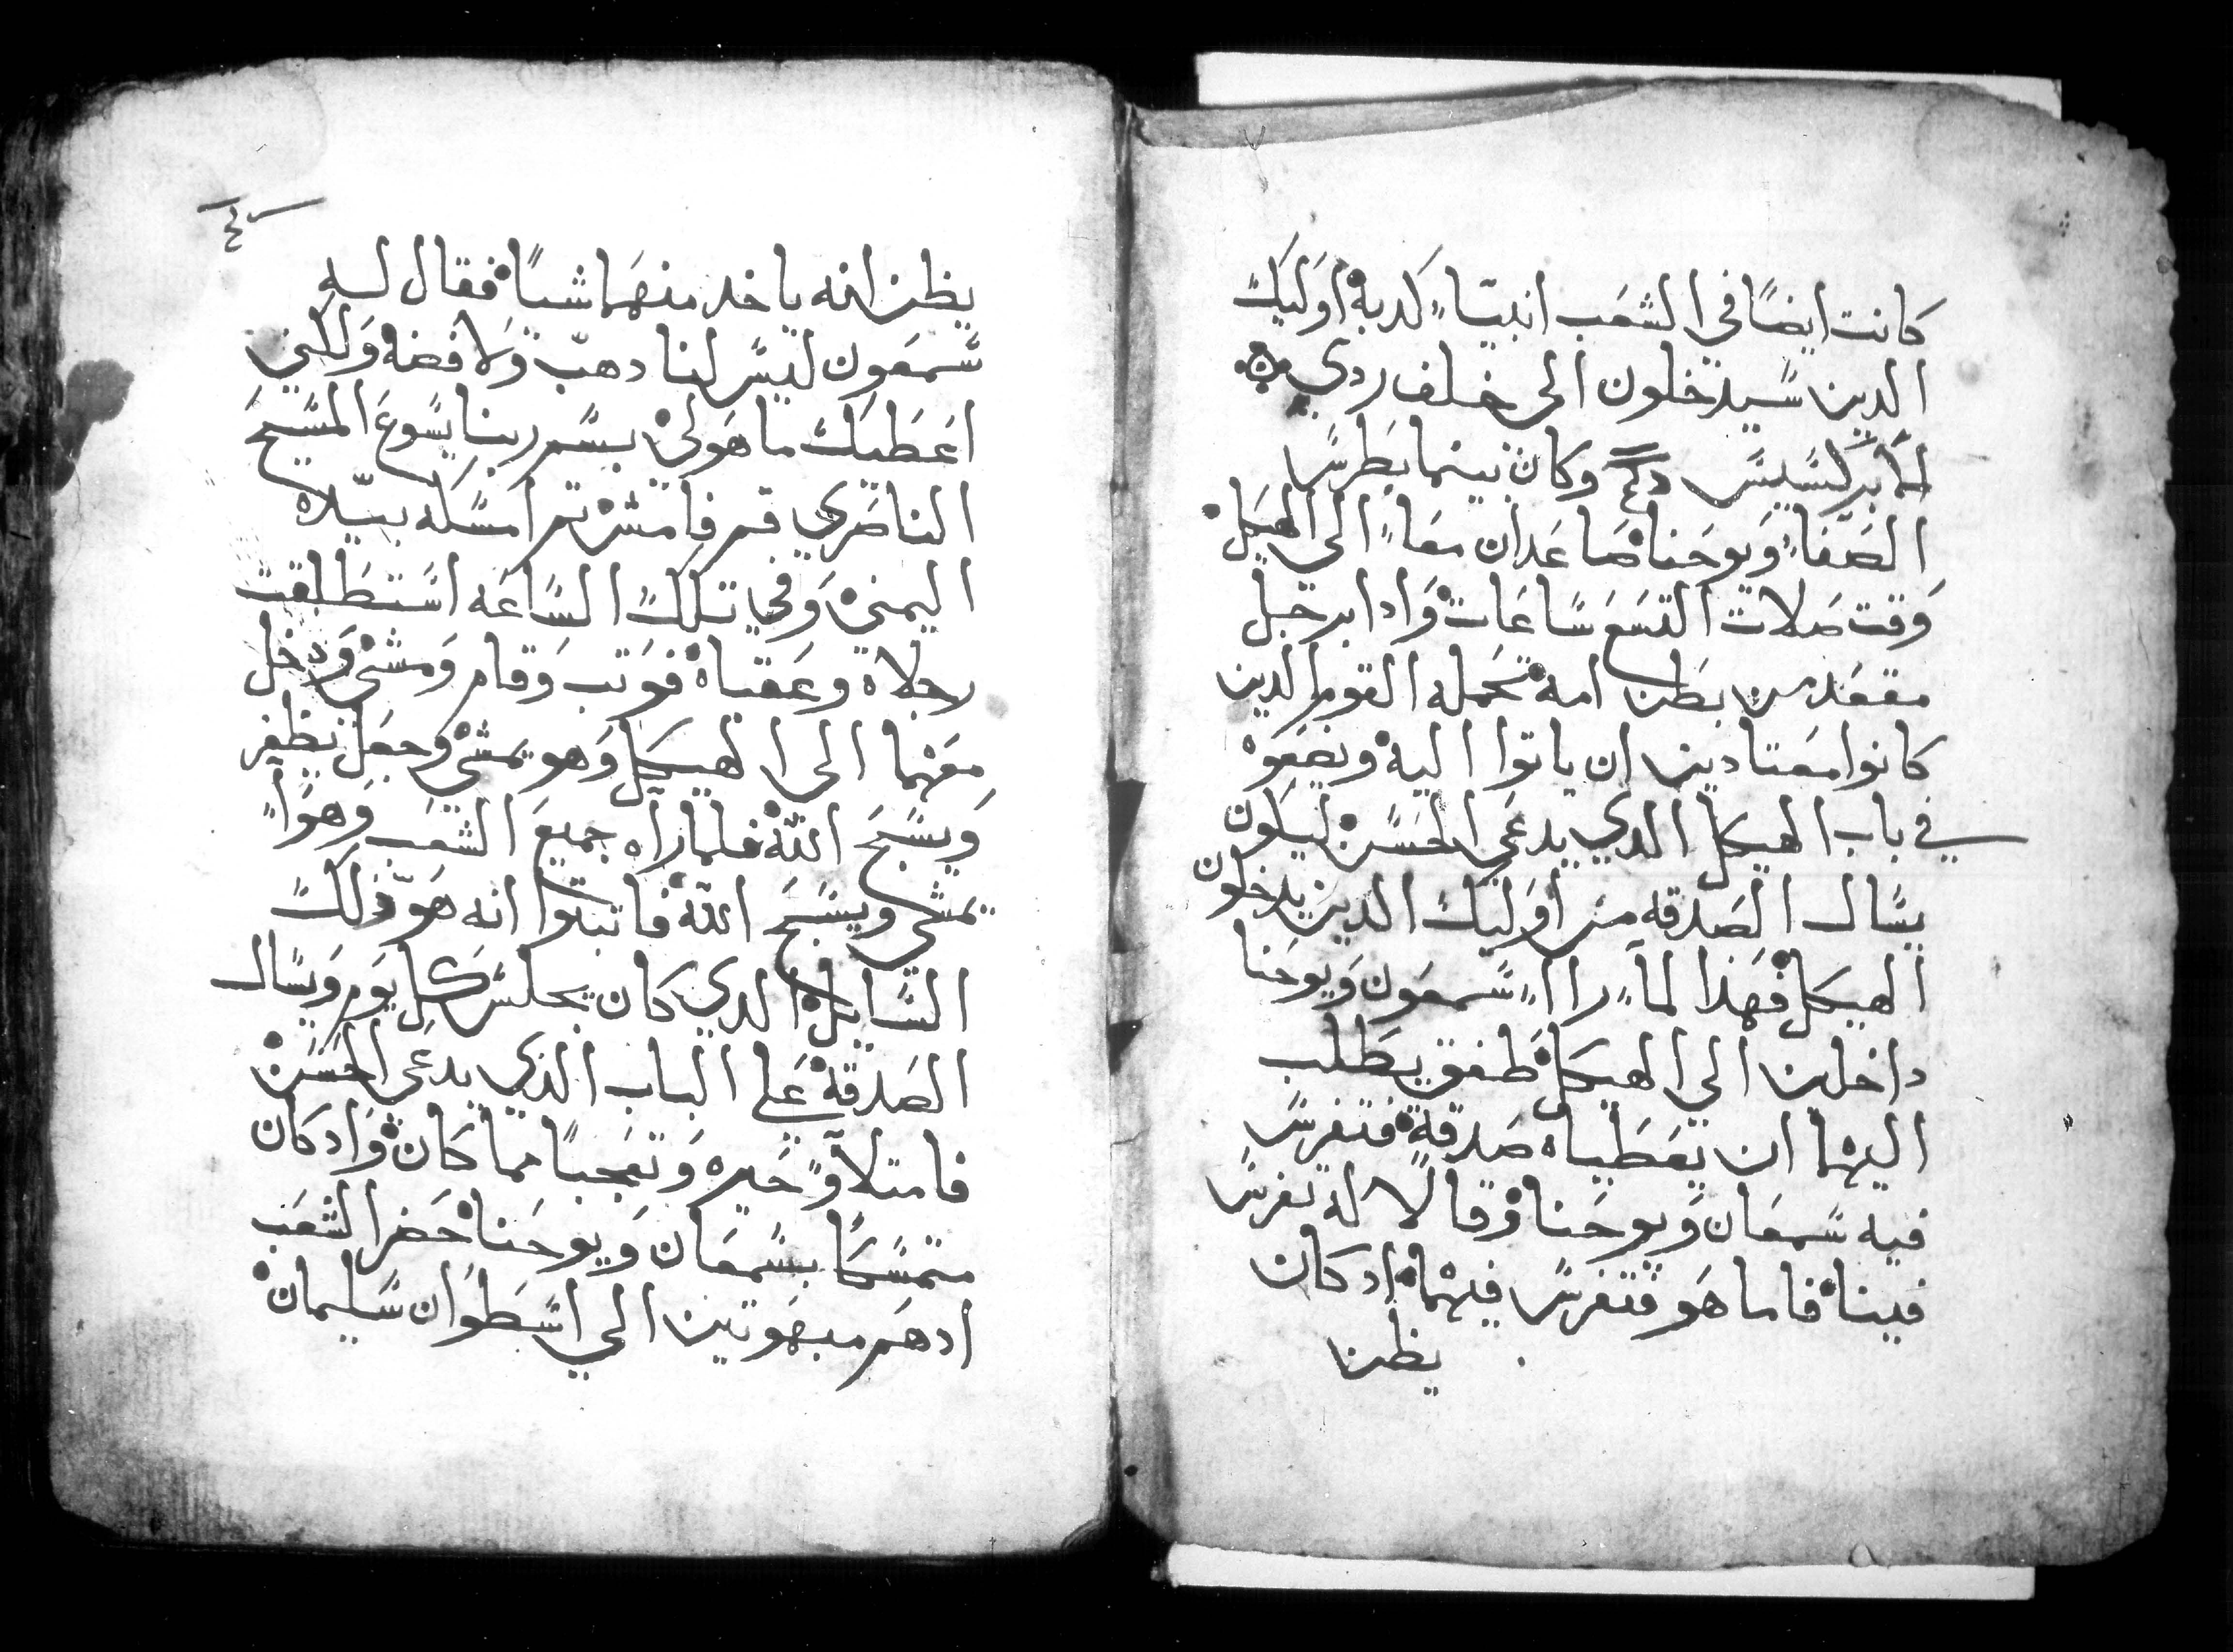 كانت ايضًا في الشعَب انبيَاءً كدبهْ اوَليكَ
الدين سَيدخلون الى خلف ردي
الابركسَيسَ وكان بينما بطرسَ
الصَفاءً وَيوحَناْ صَاعَدان معَاءً الي الهيَكلْ
وَقت صَلاة التسَع سَاعَات وَادا برجَل
مقعَد من بطن امهْ تحَمله القوم الدين
كانوا معَتادين ان ياتوا اليهْ ويضعَوهْ
في باب الهيكل الدي يدعَي الحَسَنْ ليكون
يسَال الصَدقه من اوَليك الدين يدخلون
الهيكلْ فهَذا لمآ راا سَمعَون وَيوحَنا
داخلين الي الهيكلْ طفق يطَلب
اليهما ان يعَطَياه صَدقةْ فتفرسَ
فيه سَمعَان وَيوحَناْ وَقالا له تفرسَ
فيناْ فاما هَو فتفرسَ فيهماْ اد كان
يظن
يظن انه ياخد منهَما شياًْ فقال له
سَمعَون ليسَ لنا دهبَ وَلا فضهْ وَلكني
اعَطيكَ ما هَو ليْ بسَم ربنا يسَوعَ المسَيحَ
الناصَري قم فامشْ تم امسَكه بيَده
اليمنيْ وَفي تلكَ السَاعَه اسَتطَلقت
رجلاه وعَقباهْ فوَتب وَقام وَمشيْ وَدخل
معَهما الى الهيكل وَهو يمشيْ وجعَل يظفر
وَيسَبحَ اللهْ فلما رآه جميعَ الشعَب وَهوَ
يمشي ويسَبحَ اللهْ فاتبتوا انه هَو ذلكَ
السَايلْ الدي كان يجلسَ كل يوَم وَيسَال
الصَدقهْ عَلي الباب الذي يدعَي الحَسَنْ
فامتلاوَ حَيره وَتعَجباً مما كانْ وَاد كان
متمسَكاً بسَمعَان وَيوحَناْ حَضر الشعَب
ادهَم مبهَوتين الي اسَطوَان سَليمانْ